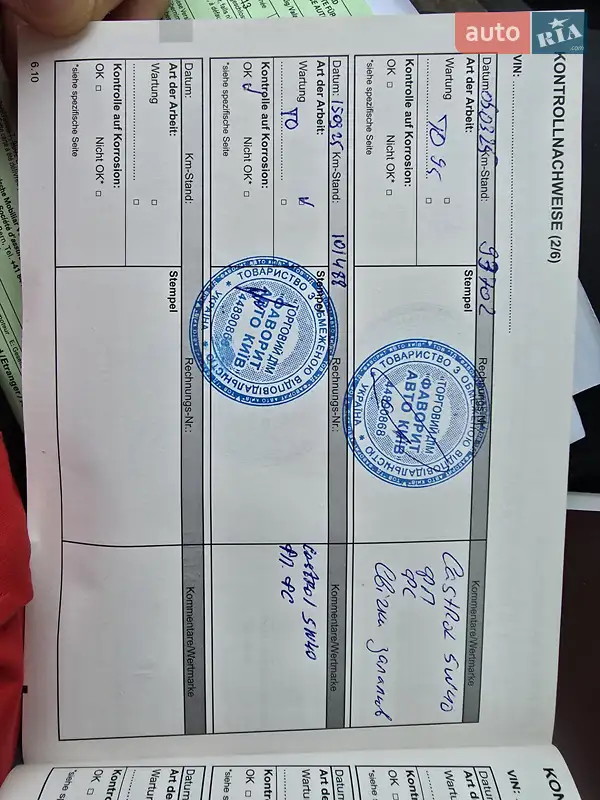 auto RIA.com
KONTROLLNACHWEISE (2/6)
VIN:
Datum: 05.03.25 Km-Stand: 93702
Rechnungs-Nr.:
Kommentare/Wertmarke
Art der Arbeit:
Stempel
Wartung
TO 95
Kontrolle auf Korrosion:
OK Nicht OK*
*siehe spezifische Seite
ТОВАРИСТВО З ОБМЕЖЕНОЮ ВІДПОВІДАЛЬНІСТЮ
* УКРАЇНА *
"ТОРГОВИЙ ДІМ
"ФАВОРИТ
АВТО КИЇВ"
44890868
Castrol 5W40
ФП
ФС
Свічки запалюв
Datum: 150925 Km-Stand: 101488
Rechnungs-Nr.:
Kommentare/Wertmarke
Art der Arbeit:
Stempel
Wartung
TO
Kontrolle auf Korrosion:
OK Nicht OK*
*siehe spezifische Seite
ТОВАРИСТВО З ОБМЕЖЕНОЮ ВІДПОВІДАЛЬНІСТЮ
* УКРАЇНА *
"ТОРГОВИЙ ДІМ
"ФАВОРИТ
АВТО КИЇВ"
44890868
Castrol 5W40
ФП. ФС
Datum: Km-Stand:
Rechnungs-Nr.:
Kommentare/Wertmarke
Art der Arbeit:
Stempel
Wartung
Kontrolle auf Korrosion:
OK Nicht OK*
*siehe spezifische Seite
6.10
KON
VIN:
Datum
Art d
Wartu
Kontr
OK
*siehe s
Datum
Art de
Wartun
Kontro
OK
*siehe s
Datum
Art de
Wartur
Kontro
OK
*siehe s